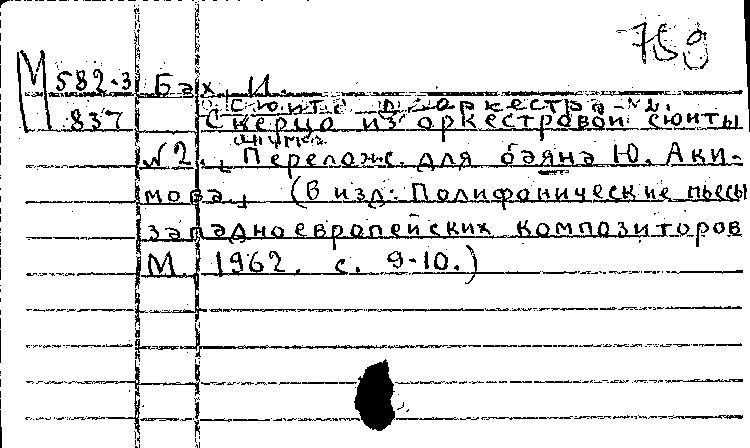 759
М 582-3 Бах, И.
Сюита оркестра №2.
837 Скерцо из оркестровой сюиты
шутка
№2. Перелож. для баяна Ю. Аки-
мова. (В изд: Полифонические пьесы
западноевропейских композиторов
М. 1962. с. 9-10.)